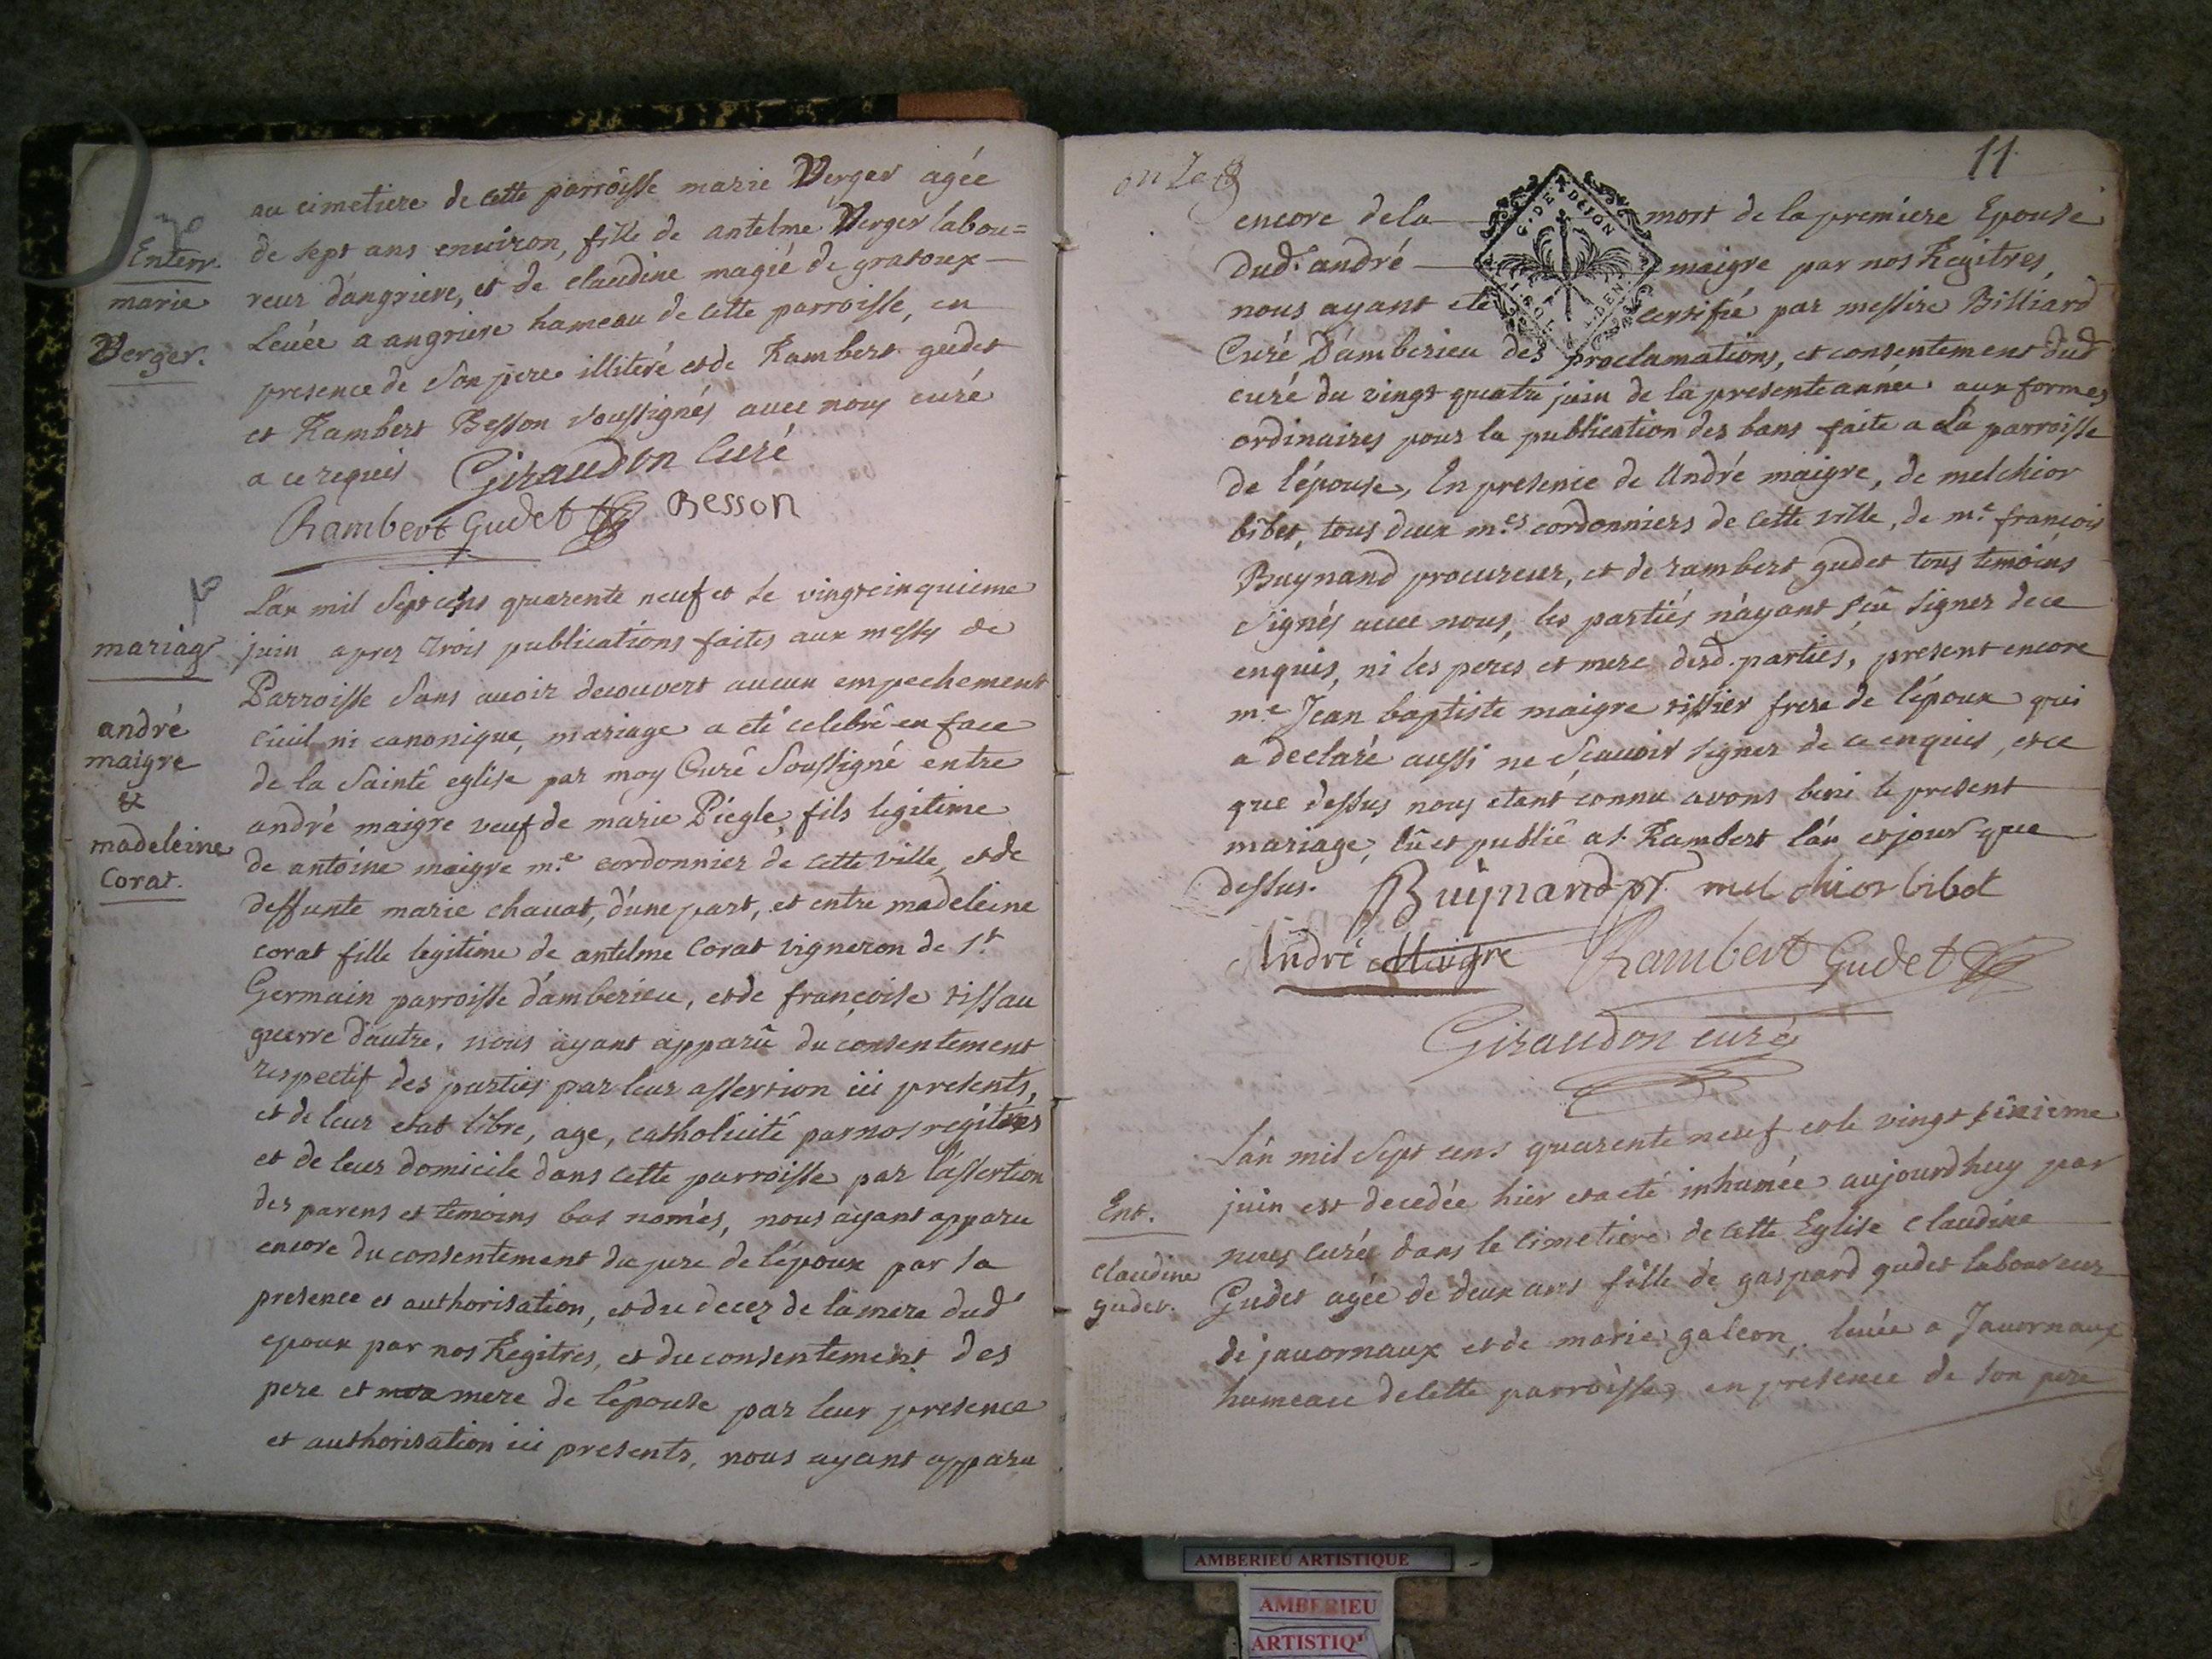 au cimetiere de cette parroisse marie Verger agée
Enterr.
marie
Verger.
de sept ans environ, fille de antelme Verger labou=
reur d'angriere, et de claudine magié de gratoux
Levée a angriere hameau de cette parroisse, en
presence de son pere illiteré et de Rambert gudet
et Rambert Besson soussignés avec nous curé
a ce requis Giraudon Curé
Rambert Gudet Besson
mariag
andré
maigre
&
madeleine
Corat.
L'an mil sept cens quarente neuf et le vingtcinquieme
juin aprez trois publications faites aux messes de
Parroisse sans avoir decouvert aucun empechement
civil ni canonique, mariage a eté celebré en face
de la Sainte eglise par moy Curé Soussigné entre
andré maigre veuf de marie Piegle, fils legitime
de antoine maigre m.e cordonnier de cette ville, et de
deffunte marie chavat, d'une part, et entre madeleine
corat fille legitime de antelme Corat vigneron de St
Germain parroisse d'amberieu, et de françoise tissau
guerre d'autre. nous ayant apparû du consentement
respectif des parties par leur assertion ici presents,
et de leur etat libre, age, catholicité par nos regitres
et de leur domicile dans cette parroisse par l'assertion
des parens et temoins bas només, nous ayant apparu
encore du consentement du pere de l'époux par sa
presence et authorisation, et du decez de la mere dud
epoux par nos Regitres, et du consentement des
pere et mere de l'épouse par leur presence
et authorisation ici presents, nous ayant apparu
onze
11.
encore de la mort de la premiere Epouse
dud. andré maigre par nos Regitres,
nous ayant eté certifié par messire Billiard
Curé D'amberieu des proclamations, et consentement dud
curé du vingt quatre juin de la presente année aux formes
ordinaires pour la publication des bans faite a La parroisse
de l'épouse, En presence de André maigre, de melchior
bibet, tous deux m.es cordonniers de cette ville, de m.e françois
Buynand procureur, et de rambert gudet tous temoins
signés avec nous, les parties n'ayant sçû signer de ce
enquis, ni les peres et mere desd. parties, present encore
m.e Jean baptiste maigre tissier frere de l'époux qui
a declaré aussi ne sçavoir signer de ce enquis, et ce
que dessus nous etant connu avons beni le present
mariage, lû et publié a St. Rambert l'an et jour que
dessus. Buynand pr. melchior bibet
André Maigre Rambert Gudet
Giraudon curé
Ent.
claudine
gudet.
L'an mil sept cens quarente neuf et le vingt sixieme
juin est decedée hier et a eté inhumée aujourdhuy par
nous curé dans le cimetiere de cette Eglise claudine
Gudet agée de deux ans fille de gaspard gudet laboureur
de javornaux et de marie galeon, levée a Javornaux
hameau de cette parroisse, en présence de son pere
AMBERIEU ARTISTIQUE
AMBERIEU
ARTISTIQ